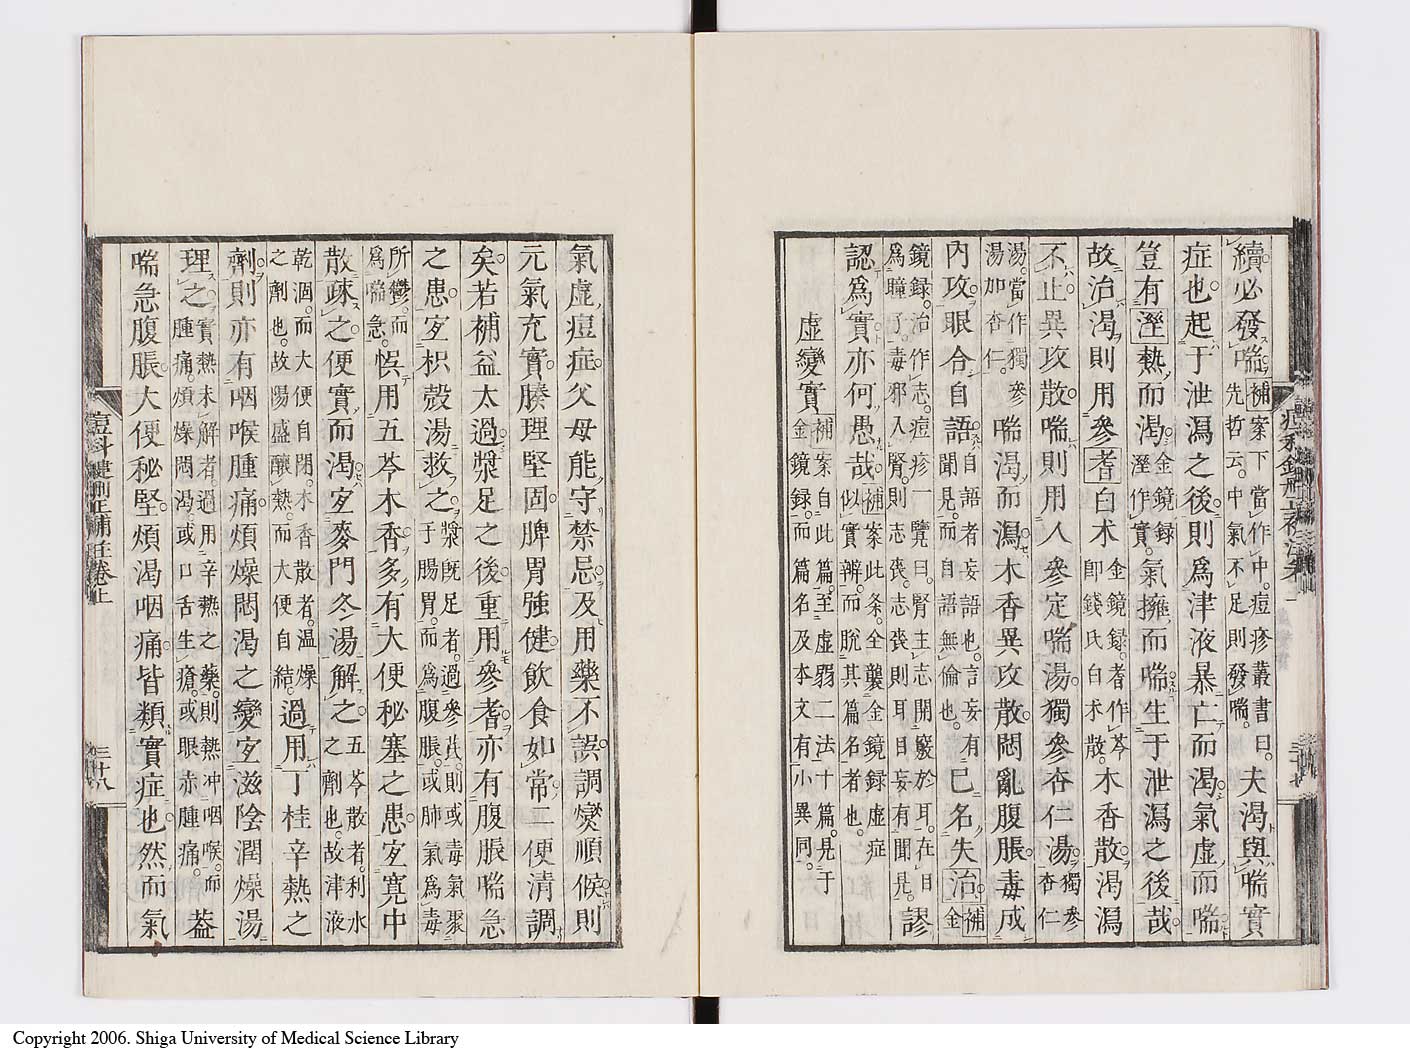 續必發喘補案下當作中痘疹叢書曰夫渴與喘實
先哲云中氣不足則發喘
症也起于泄瀉之後則爲津液暴亡而渴氣虛而喘
豈有溼熱而渴金鏡録溼作實氣擁而喘生于泄瀉之後哉
故治渴則用參耆白朮金鏡録耆作芩卽錢氏白朮散木香散渴瀉
不止異攻散喘則用人參定喘湯獨參杏仁湯獨參杏仁
湯當作獨參湯加杏仁喘渴而瀉木香異攻散悶亂腹脹毒成
內攻眼合自語自語者妄語也言妄有聞見而自語無倫也已名失治補金
鏡録治作志痘疹一覽曰腎主志開竅於耳在目爲瞳子毒邪入腎則志喪志喪則耳目妄有聞見謬
認爲實亦何愚哉補案此条全襲金鏡録虛症似實辨而脫其篇名者也
虛變實補案自此篇至虛弱二法十篇見于金鏡録而篇名及本文有小異同
氣虛痘症父母能守禁忌及用藥不誤調爕順候則
元氣充實腠理堅固脾胃強健飲食如常二便清調
矣若補益太過漿足之後重用參耆亦有腹脹喘急
之患宐枳殼湯救之漿旣足者過參芪則或毒氣聚于腸胃而爲腹脹或肺氣爲毒
所鬱而爲喘急悞用五苓木香多有大便秘塞之患宐寬中
散疎之便實而渴宐麥門冬湯解之五苓散者利水之劑也故津液
乾涸而大便自閉木香散者温燥之劑也故陽盛釀熱而大便自結過用丁桂辛熱之
劑則亦有咽喉腫痛煩燥悶渴之變宐滋陰潤燥湯
理之實熱未解者過用辛熱之藥則熱冲咽喉而腫痛煩燥悶渴或口舌生瘡或眼赤腫痛葢
喘急腹脹大便秘堅煩渴咽痛皆類實症也然而氣
痘科鍵刪正補註卷上
三十八
Copyright 2006. Shiga University of Medical Science Library